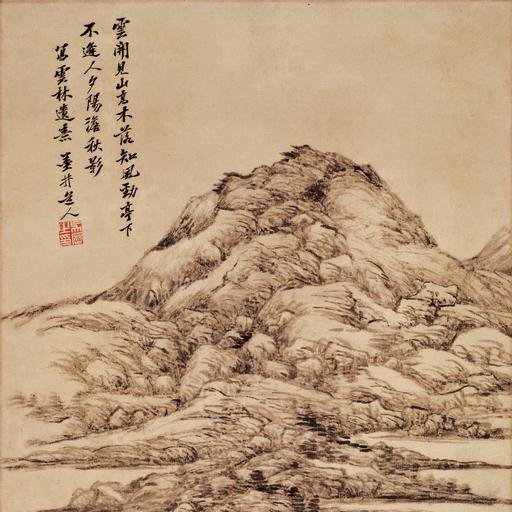 雲開見山高木落知風勁亭下
不逢人夕陽澹秋影
寫雲林遺意 墨井道人